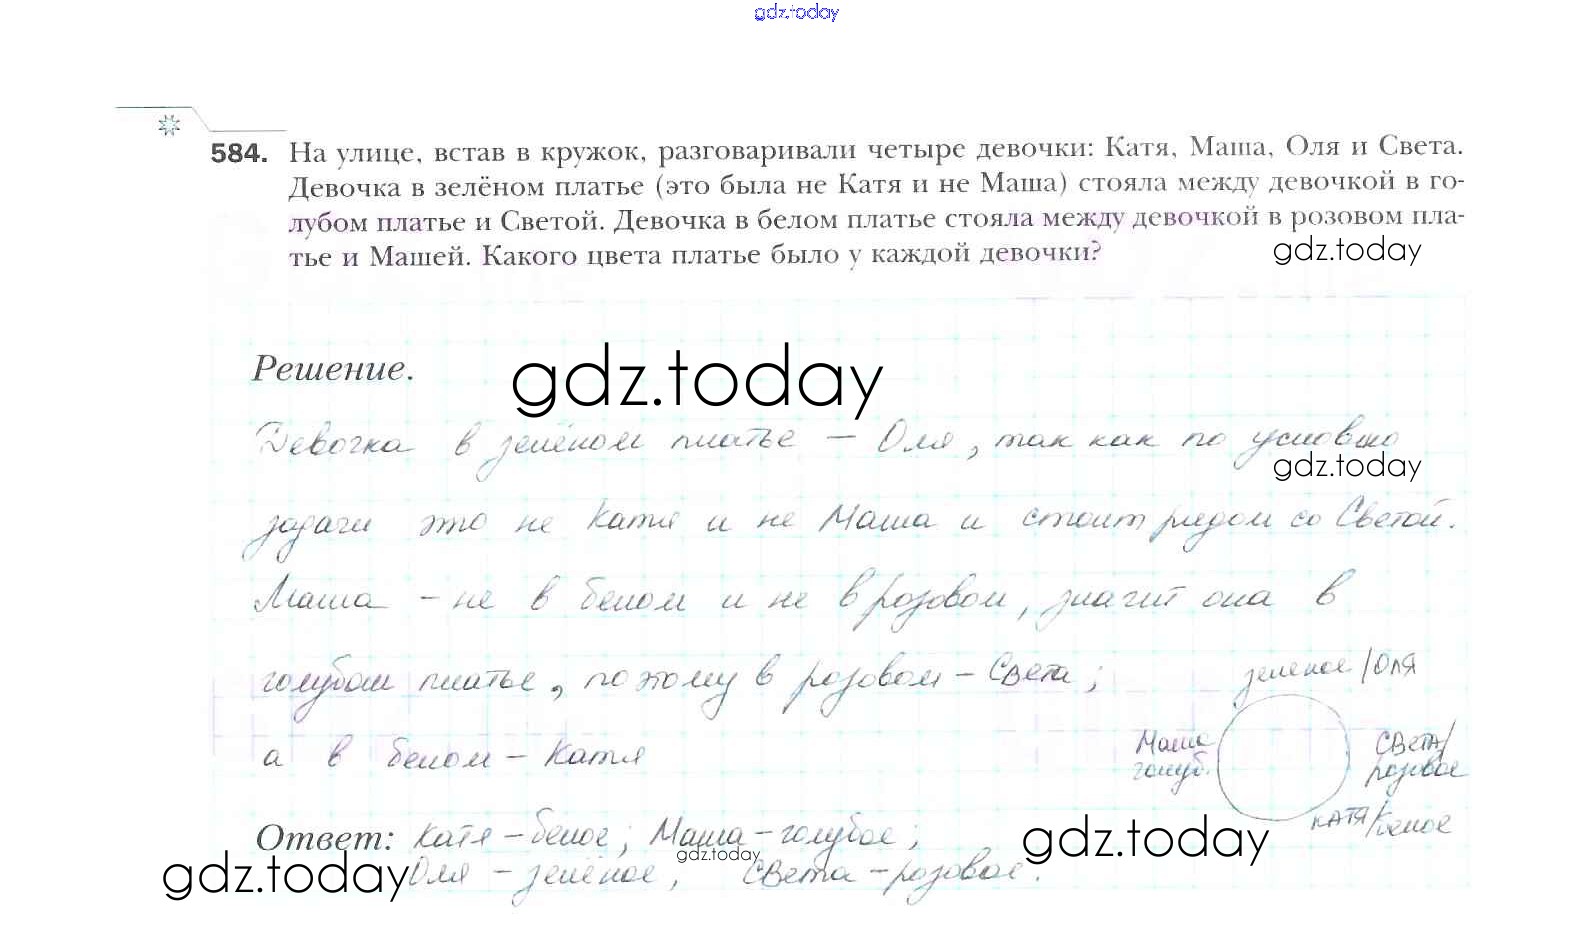 gdz.today
584. На улице, встав в кружок, разговаривали четыре девочки: Катя, Маша, Оля и Света.
Девочка в зелёном платье (это была не Катя и не Маша) стояла между девочкой в го-
лубом платье и Светой. Девочка в белом платье стояла между девочкой в розовом пла-
тье и Машей. Какого цвета платье было у каждой девочки?
gdz.today
Решение.
gdz.today
Девочка в зелёном платье – Оля, так как по условию
gdz.today
задачи это не Катя и не Маша и стоит рядом со Светой.
Маша – не в белом и не в розовом, значит она в
голубом платье, поэтому в розовом – Света;
зеленое/Оля
а в белом – Катя
Маша голуб.
Света/розовое
Катя/белое
Ответ: Катя – белое; Маша – голубое;
gdz.today
gdz.today
gdz.today
Оля – зелёное, Света – розовое.